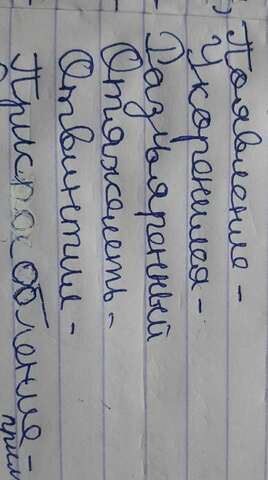 Появление -
Укоренился -
Разъяренный
Отяжелеть -
Отвинтил -
Приспособления -
прил